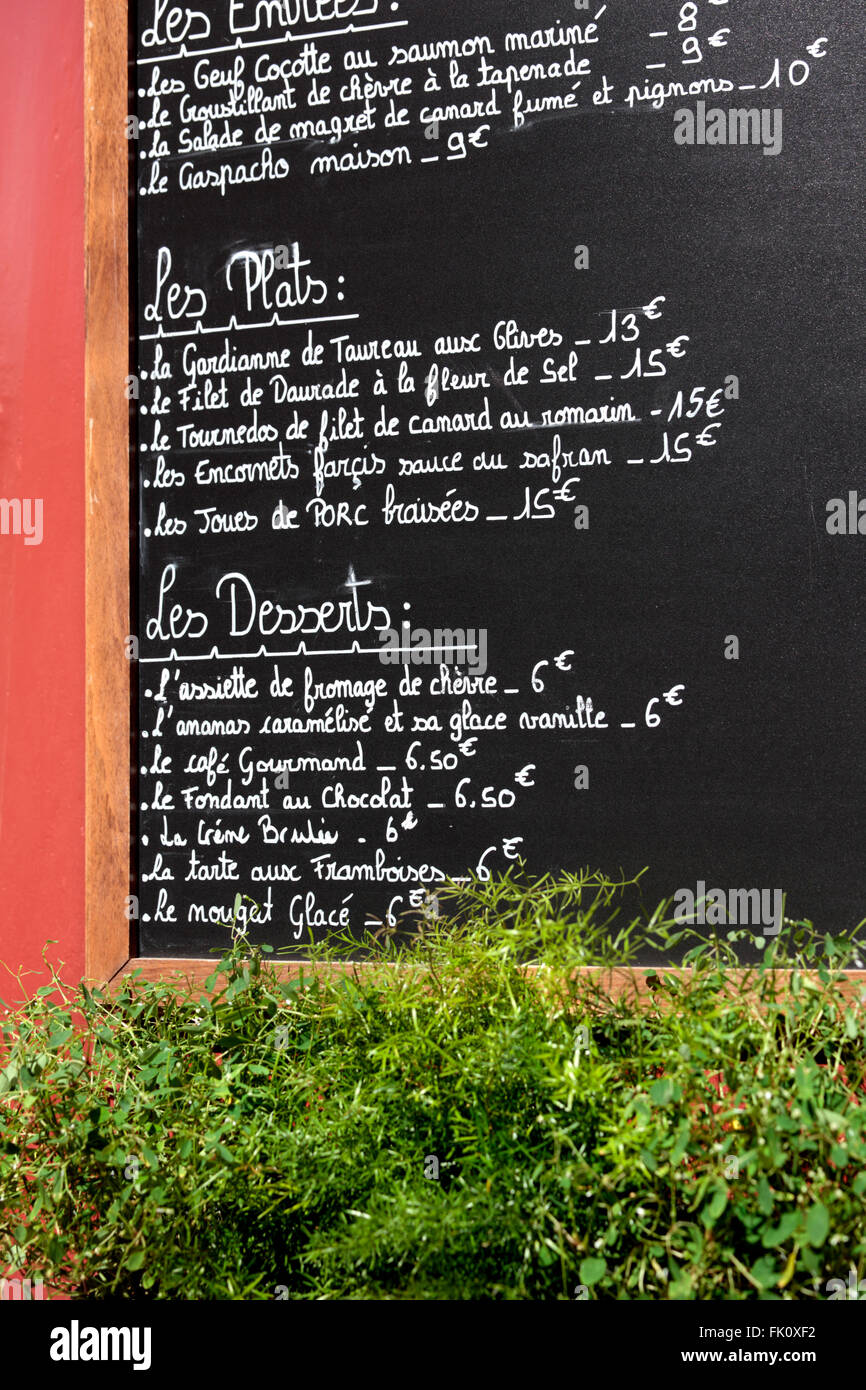 Les Entrées:
.Les Oeuf Cocotte au saumon mariné - 8€
.Le Croustillant de chèvre à la tapenade - 9€
.La Salade de magret de canard fumé et pignons - 10€
.Le Gaspacho maison - 9€
Les Plats:
.La Gardianne de Taureau aux Olives - 13€
.Le Filet de Daurade à la fleur de Sel - 15€
.Le Tournedos de filet de canard au romarin - 15€
.Les Encornets farçis sauce au safran - 15€
.Les Joues de PORC braisées - 15€
Les Desserts:
.L'assiette de fromage de chèvre - 6€
.L'ananas caramélisé et sa glace vanille - 6€
.Le café Gourmand - 6.50€
.Le Fondant au Chocolat - 6.50€
.La Crème Brulée - 6€
.La tarte aux Framboises - 6€
.Le nougat Glacé - 6€
alamy stock photo
FK0XF2
www.alamy.com